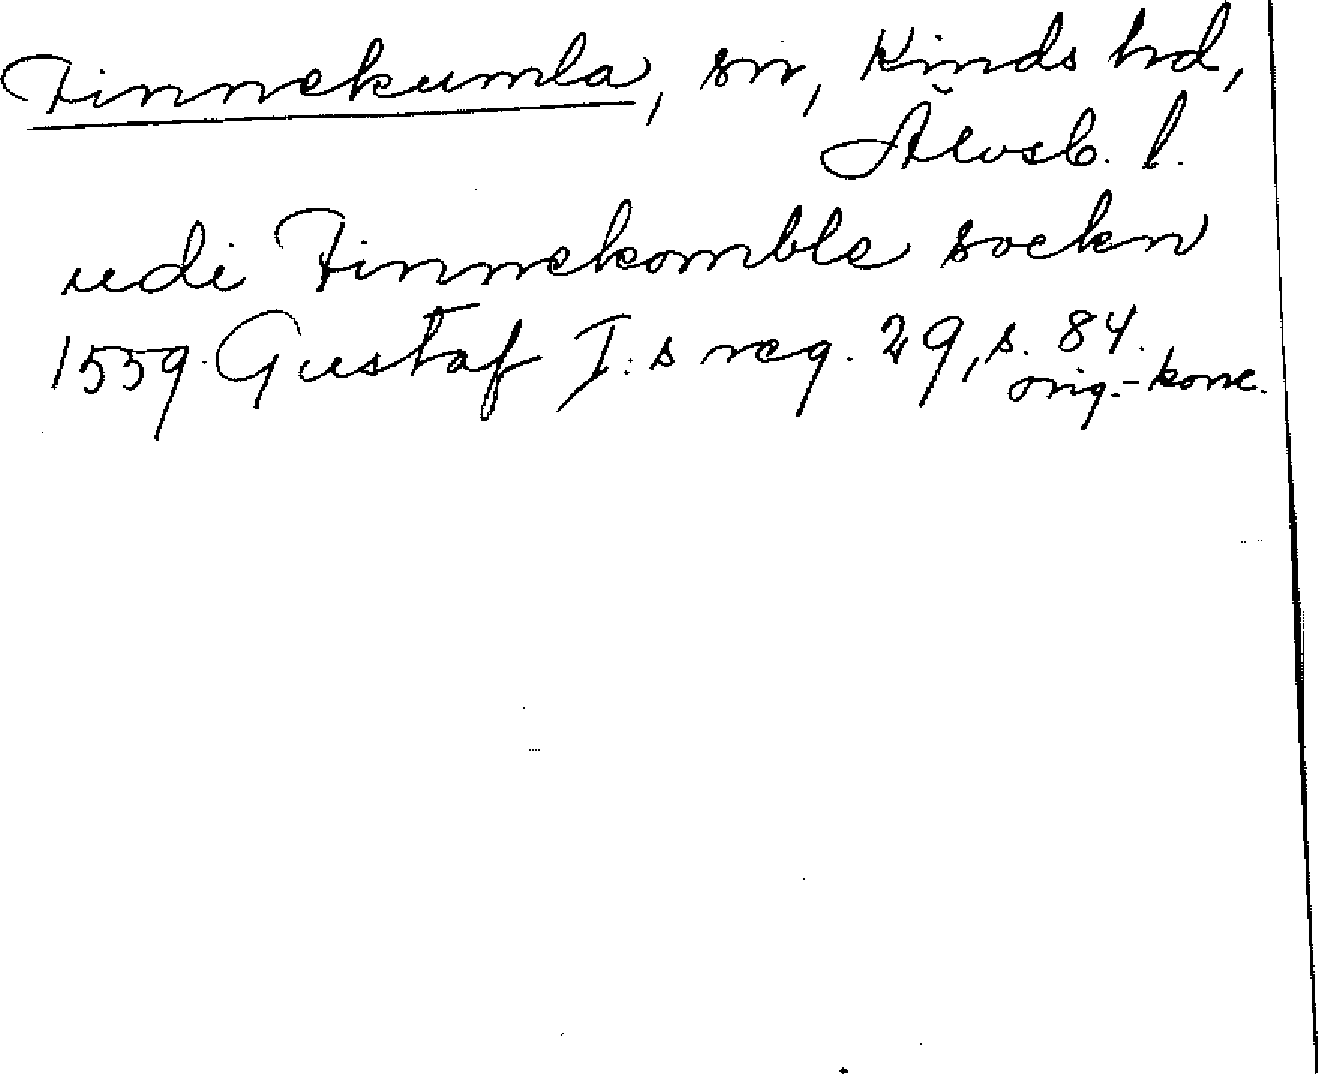 Finnekumla, sn, Kinds hd,
Älvsb. l.
udi Finnekomble sockn
1559. Gustaf I:s reg. 29, s. 84.
orig.-konc.